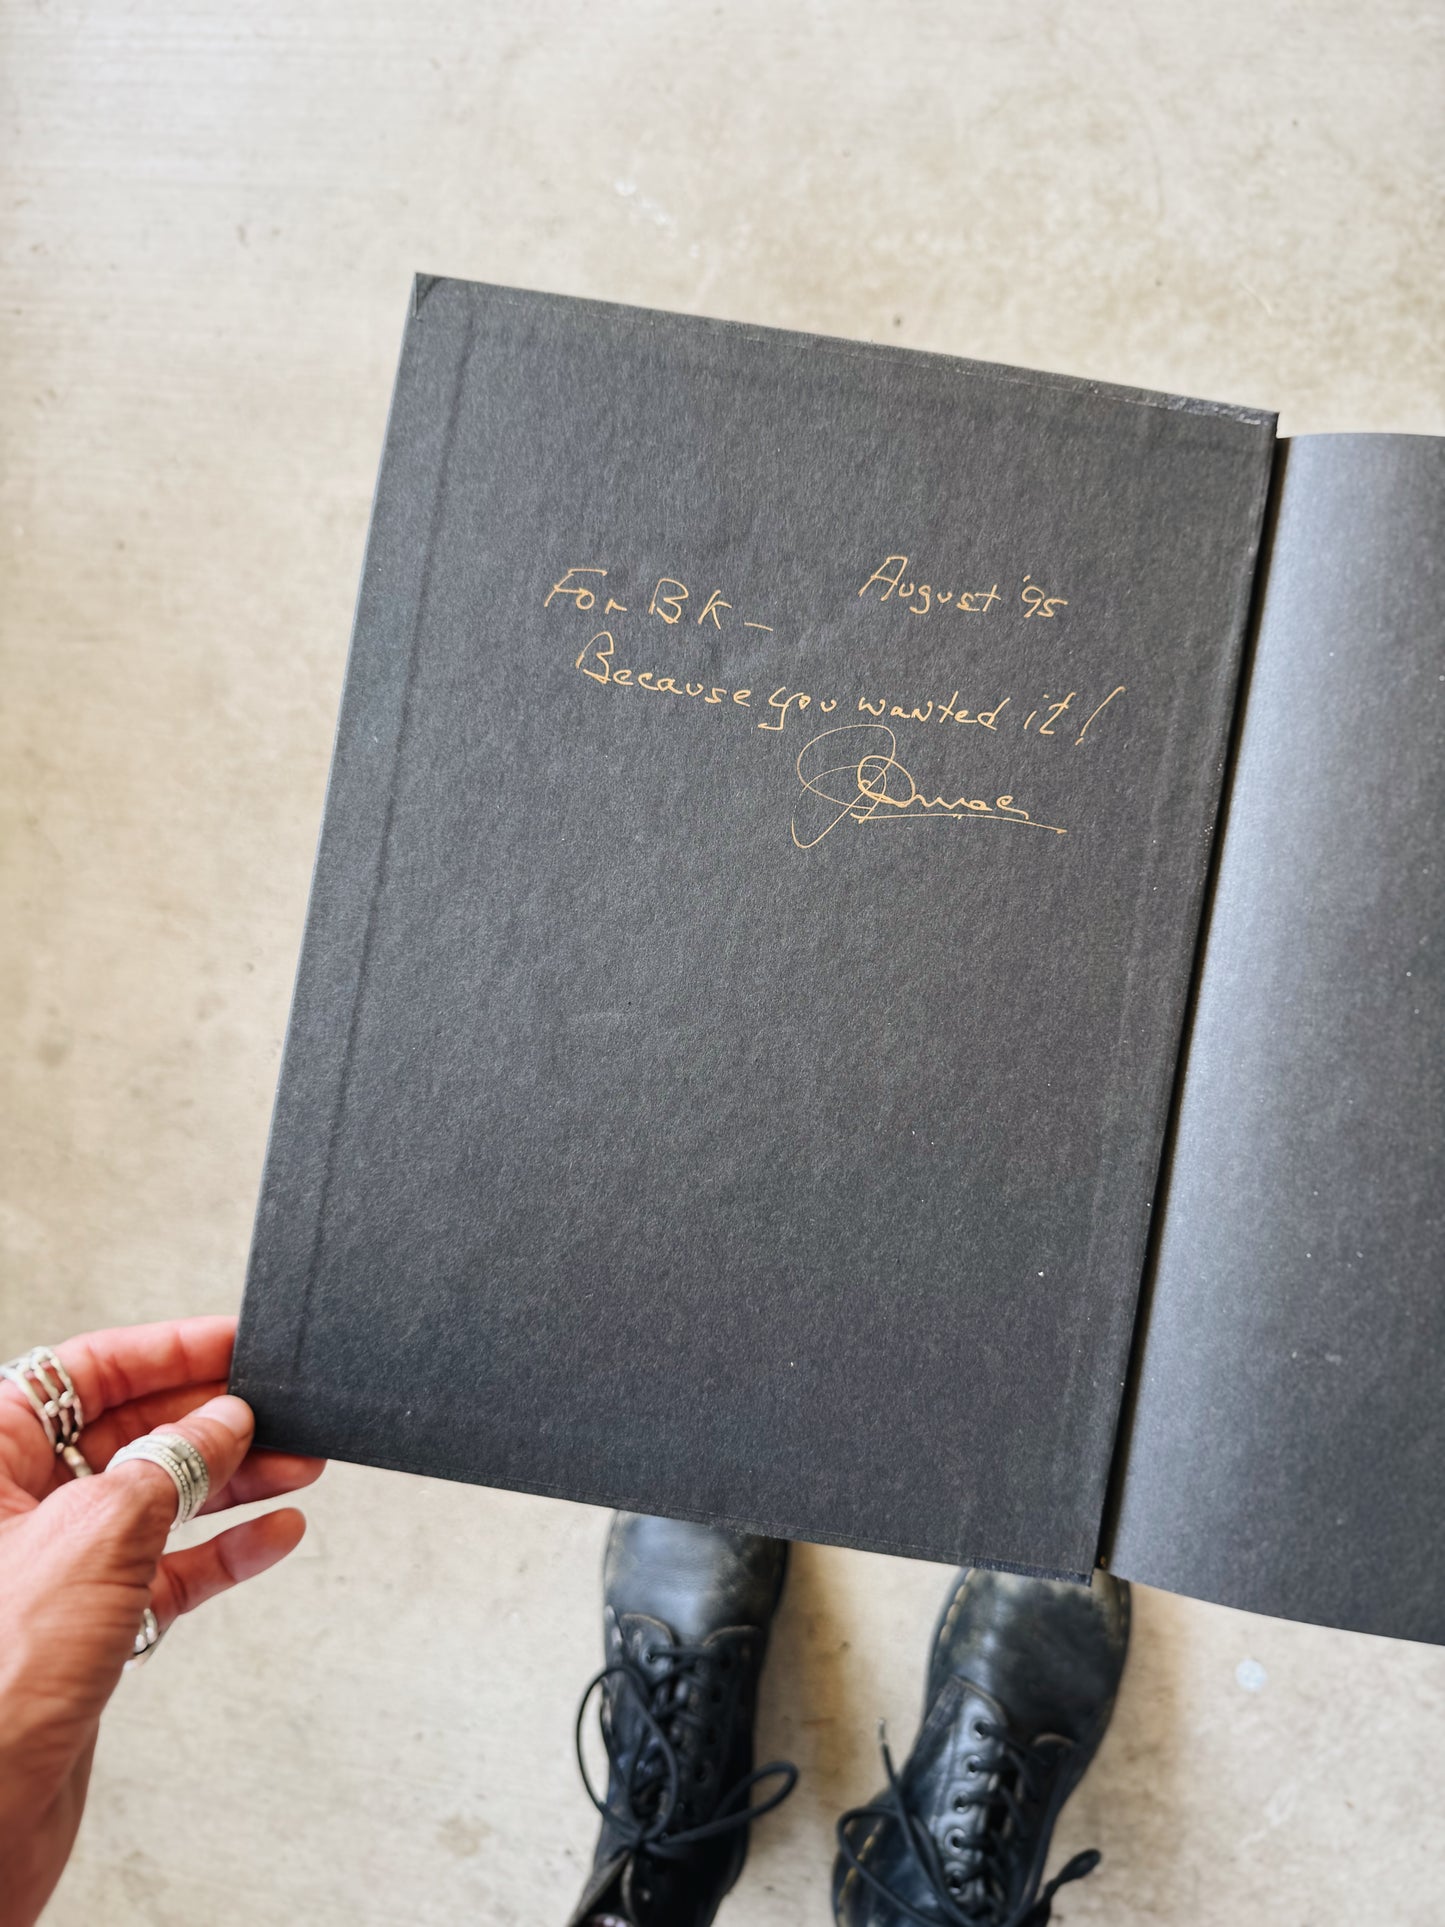 For BK – August '95
Because you wanted it!